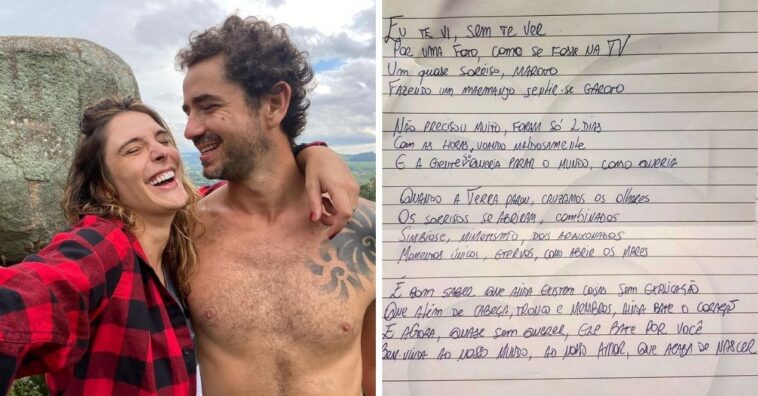 Eu te vi, sem te ver
Por uma foto, como se fosse na TV
Um quase sorriso, maroto
Fazendo um marmanjo sentir-se garoto
Não precisou muito, foram só 2 dias
Com as horas, voando maldosamente
E a gente só queria parar o mundo, como queria
Quando a Terra parou, cruzamos os olhares
Os sorrisos se abriram, combinados
Simbiose, mimetismo, dois apaixonados
Momentos únicos, eternos, como abrir os mares
É bom saber que ainda existem coisas sem explicação
Que além de cabeça, tronco e membros, ainda bate o coração
E agora, quase sem querer, ele bate por você
Bem vinda ao nosso mundo, ao novo amor, que acaba de nascer